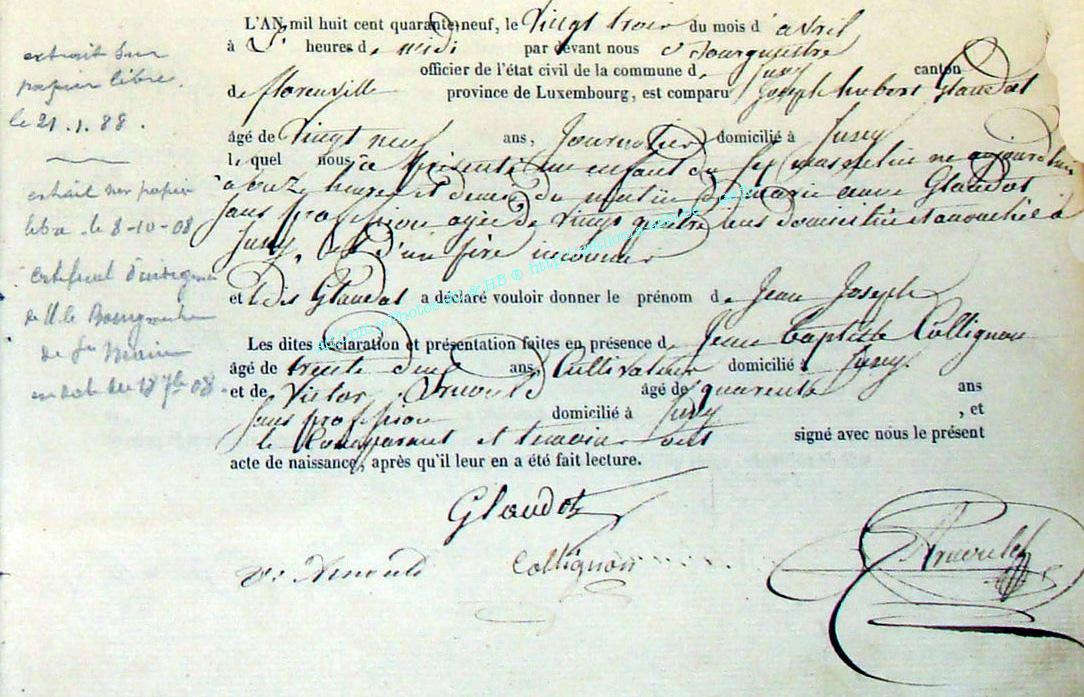 L'AN mil huit cent quarante neuf, le vingt trois du mois d'avril
à heures de midi par devant nous Bourgmestre
officier de l'état civil de la commune de Jusey canton
de florenville province de Luxembourg, est comparu Joseph hubert Glaudot
âgé de vingt neuf ans, Journalier domicilié à Jusey
lequel nous a présenté un enfant du sexe masculin né aujourd'hui
à onze heures et demie du matin de marie anne Glaudot
sans profession agée de vingt quatre ans domiciliée et accouchée à
Jusey, et d'un père inconnu
et ledit Glaudot a déclaré vouloir donner le prénom de Jean Joseph
Les dites déclaration et présentation faites en présence de Jean baptiste Collignon
âgé de trente deux ans, Cultivateur domicilié à Jusey
et de Victor Arnould âgé de quarente ans
sans profession domicilié à Jusey , et
le Comparant et temoins ont signé avec nous le présent
acte de naissance, après qu'il leur en a été fait lecture.
Glaudot
v. Arnould Collignon
extrait sur
papier libre.
le 21.1.88.
extrait sur papier
libre le 8-10-08
certificat
de M. le Bourgmestre
de
en date du 18 7bre 08